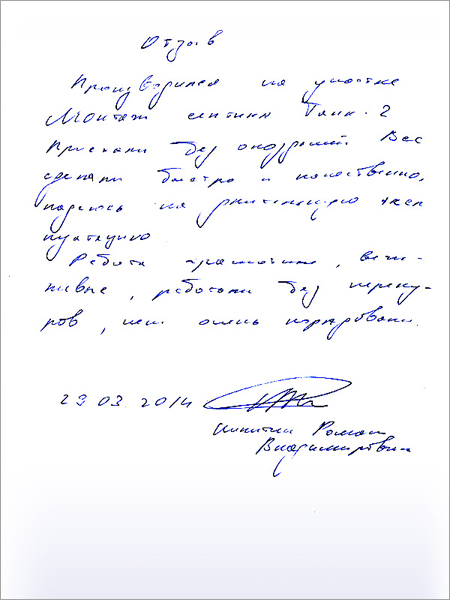 Отзыв
Производился на участке
Монтаж септика Танк-2
Приехали без опозданий Все
сделали быстро и качественно,
надеюсь на длительную экс
пуатацию
Ребята грамотные, веж-
ливые, работали без переку-
ров, нет очень порядовали.
29 03 2014
Никитин Роман
Владимирович